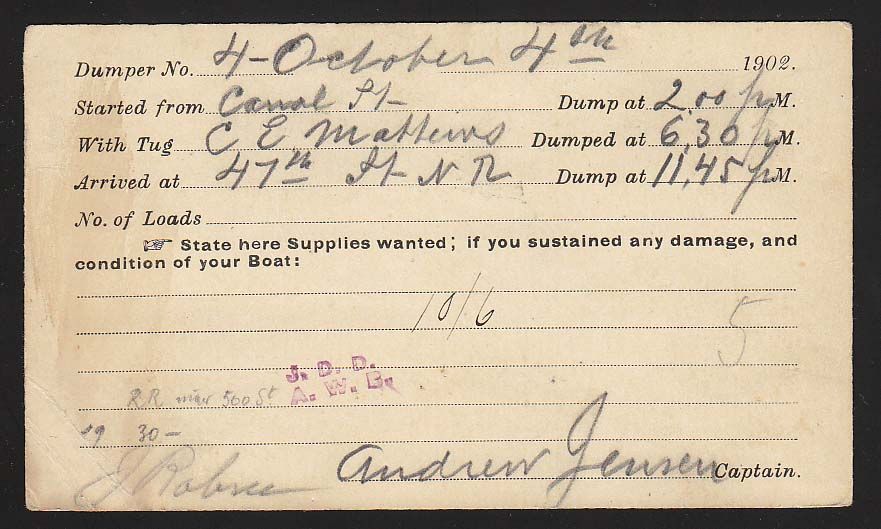 Dumper No. 4 - October 4th 1902.
Started from Canal St - Dump at 2.00 p M.
With Tug C E Mathews Dumped at 6,30 p M.
Arrived at 47th St - N R Dump at 11,45 p M.
No. of Loads
☞ State here Supplies wanted; if you sustained any damage, and
condition of your Boat:
10/6
5
J. D. D.
A. W. B.
RR 500 St
19 30-
Andrew Jensen Captain.